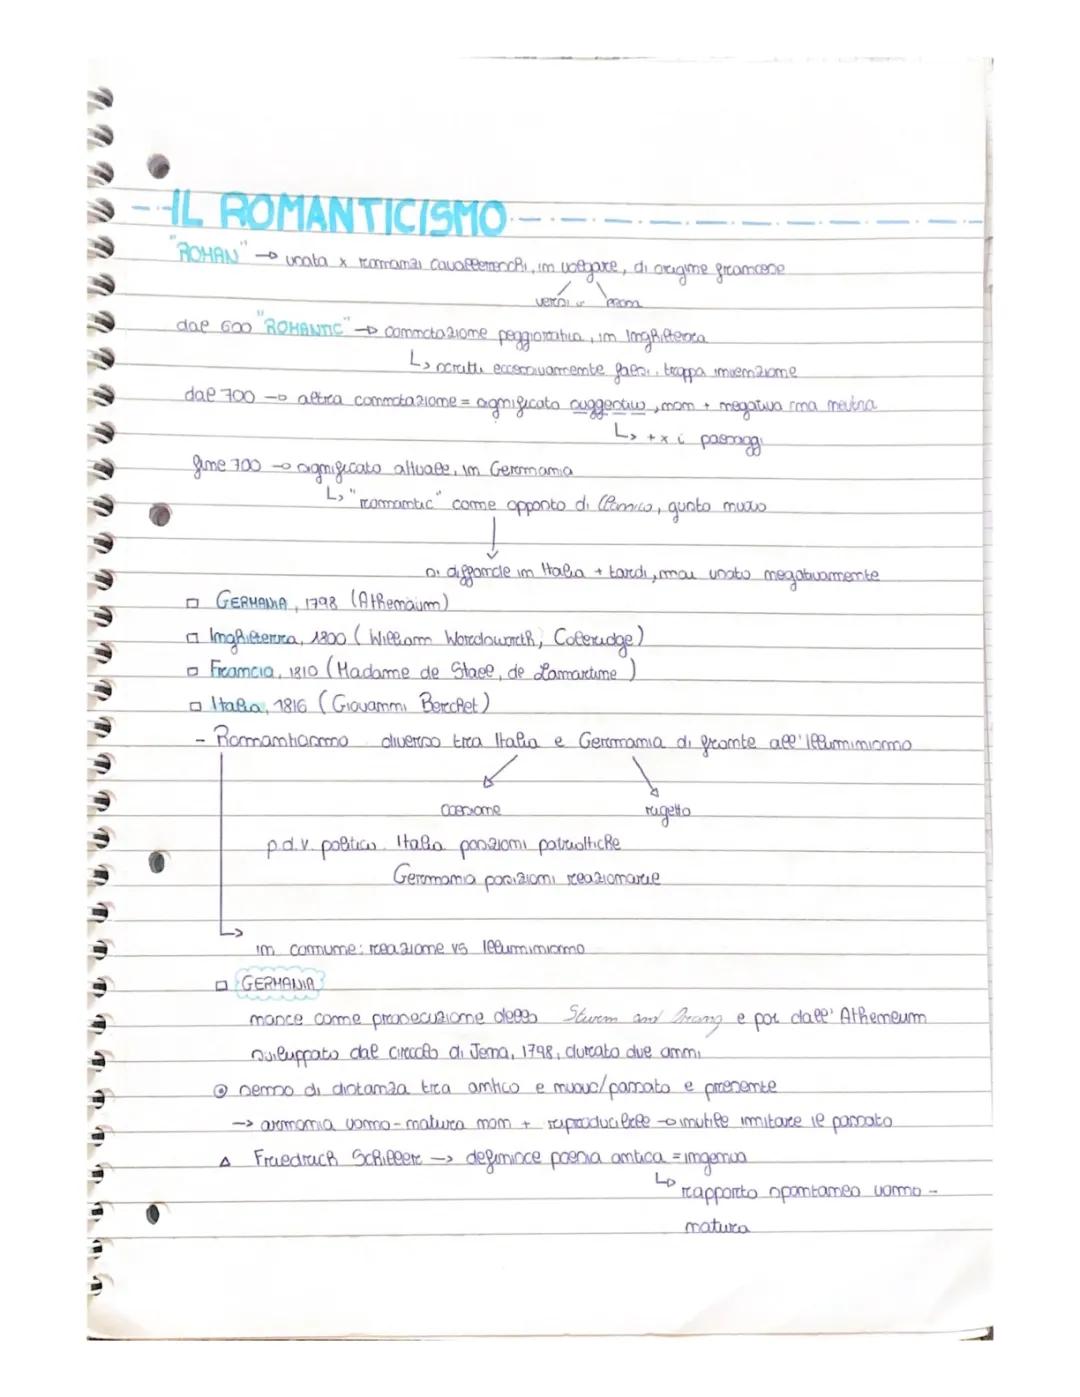 IL ROMANTICISMO
"ROMAN" → usata x romanzi cavallereschi, in volgare, di origine francese
versi o prosa
dal 600 "ROMANTIC" → connotazione peggiorativa, in Inghilterra
↳ scritti eccessivamente falsi, troppa invenzione
dal 700 → altra connotazione = significato suggestivo, non + negativa ma neutra
↳ + x i paesaggi
fine 700 → significato attuale, in Germania
↳ "romantic" come opposto di Classico, gusto nuovo
↓
si diffonde in Italia + tardi, mai usato negativamente
□ GERMANIA, 1798 (Athenäum)
□ Inghilterra, 1800 (William Wordsworth, Coleridge)
□ Francia, 1810 (Madame de Stael, de Lamartine)
□ Italia, 1816 (Giovanni Berchet)
- Romanticismo diverso tra Italia e Germania di fronte all'Illuminismo
coesione rigetto
p.d.v. politico Italia posizioni patriottiche
Germania posizioni reazionarie
↳ in comune: reazione vs Illuminismo
□ GERMANIA
nasce come prosecuzione dello Sturm and Drang e poi dall'Atheneum
sviluppato dal circolo di Jena, 1798, durato due anni
⊙ senso di distanza tra antico e nuovo/passato e presente
→ armonia uomo-natura non + riproducibile → inutile imitare il passato
△ Friedrich Schiller → definisce poesia antica = ingenua
↳ rapporto spontaneo uomo-
natura